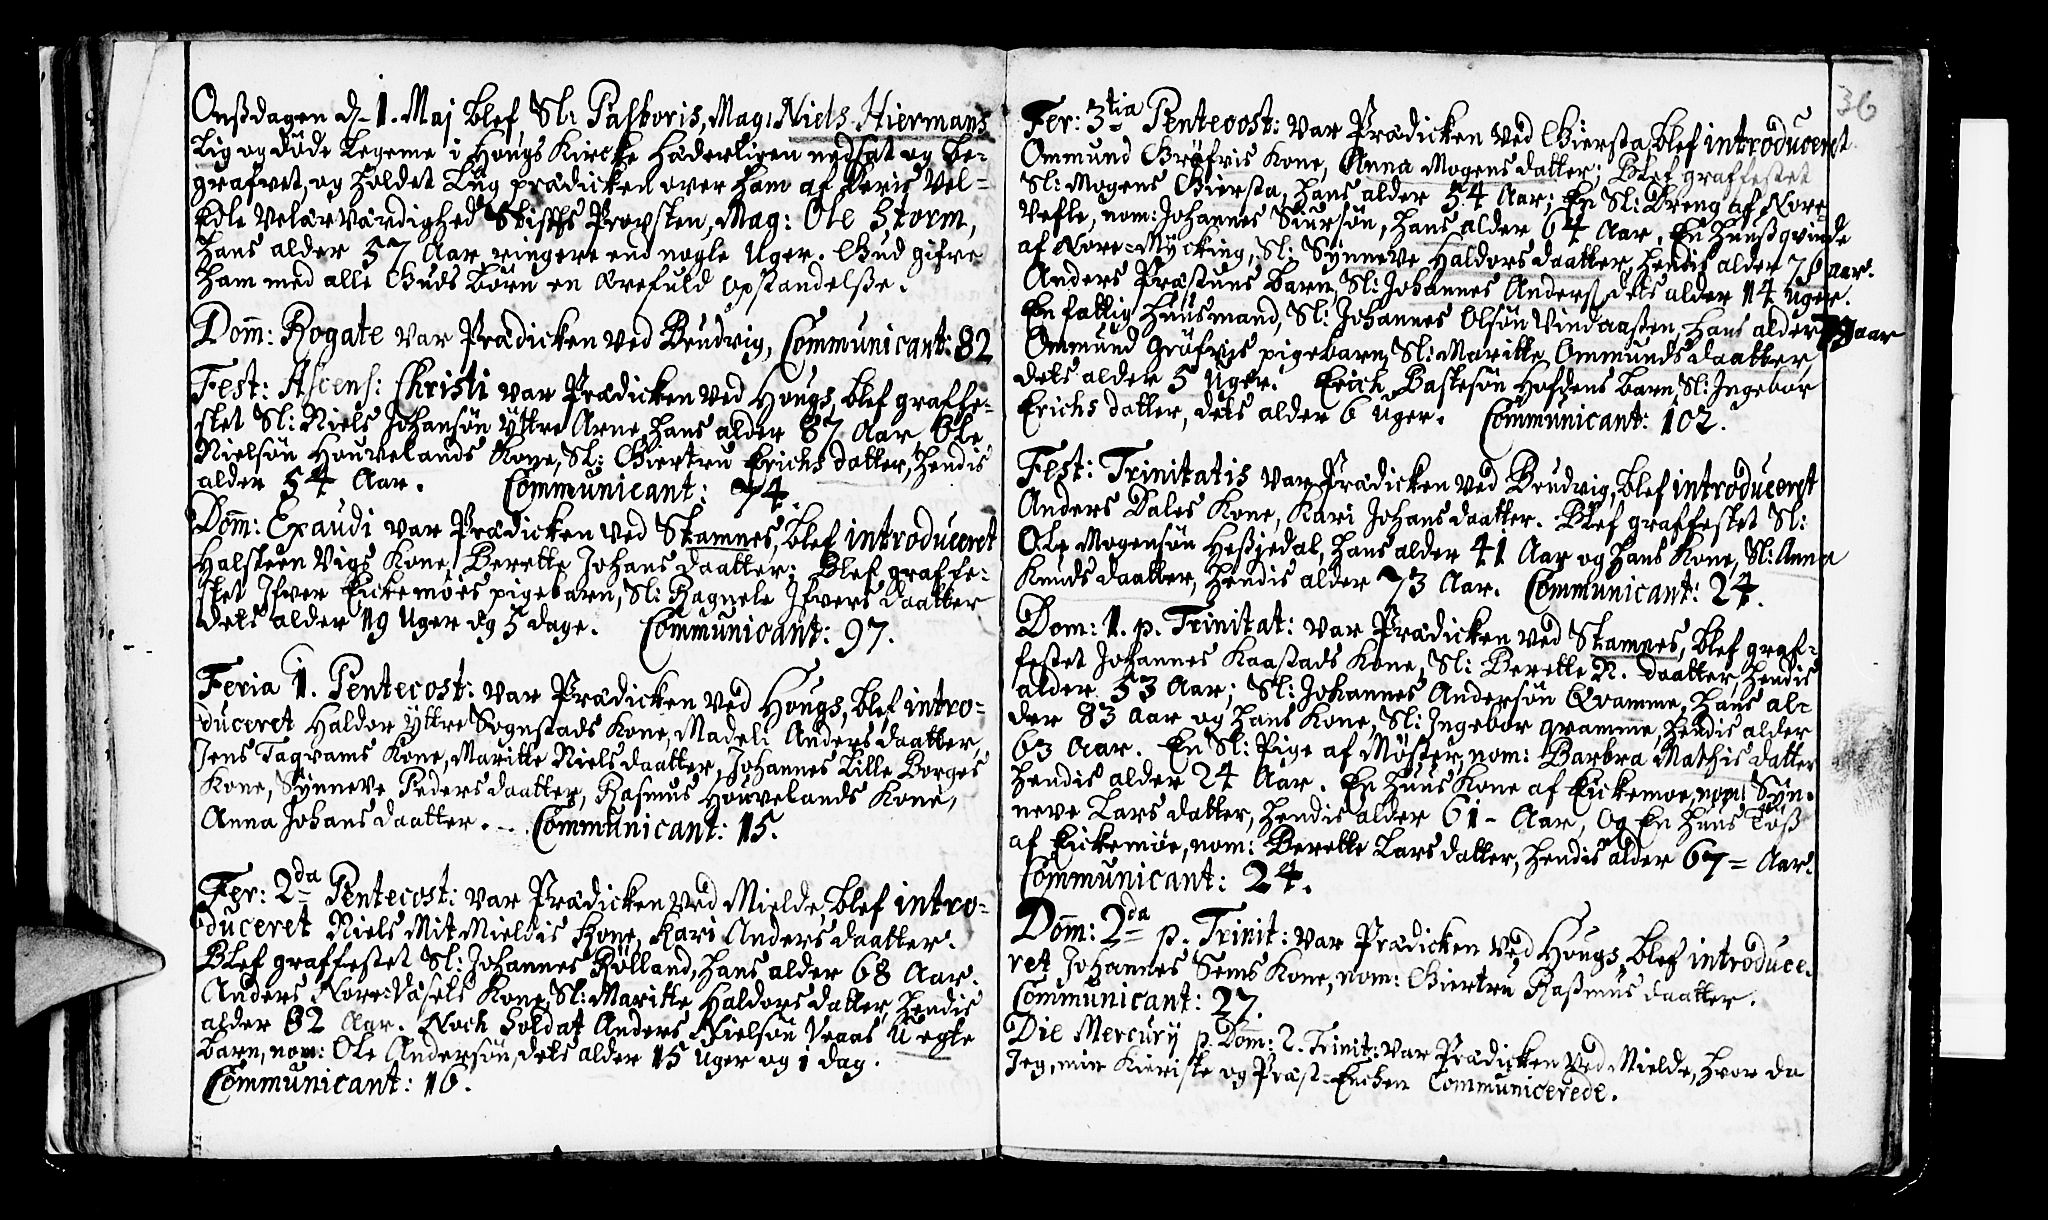 Onßdagen d. 1. Maj blef Sl: Pastoris, Mag: Niels Hiermans
Lig og döde Legeme i Hougs Kircke hæderligen nedsat og be-
grafvet, og holdet Liig prædicken over ham af Veris Vel-
Edle Velærværdighed Stifts Provsten, Mag: Ole Storm,
hans alder 57 Aar ringere end nogle Uger. Gud gifve
ham med alle Guds Börn en ærefuld opstandelße.
Dom: Rogate var Prædicken ved Brudvig, Communicant: 82
Fest: Ascens: Christi var Prædicken ved Hougs, blef graffe-
stet Sl: Niels Johansön Yttre Arne, hans alder 87 Aar, Ole
Nielsön Houvelands Kone, Sl: Giertru Erichs datter, hendis
alder 54 Aar. Communicant: 74.
Dom: Exaudi var Prædicken ved Stamnes, blef introduceret
Halsteen Vigs Kone, Berette Johans daatter; Blef graffe-
stet Ifver Eickemöes pigebarn, Sl: Ragnele Ifvers daatter
dets alder 19 Uger og 5 dage. Communicant: 97.
Feria 1. Pentecost: var Prædicken ved Hougs, blef intro-
duceret Haldor Yttre Sognstads Kone, Madeli Anders daatter,
Jens Tagvams Kone, Maritte Niels daatter, Johannes Lille Borges
Kone, Synneve Peders daatter, Rasmus Houvelands Kone,
Anna Johans daatter. Communicant: 15.
Fer: 2da Pentecost: var Prædicken ved Mielde, blef intro-
duceret Niels Mit Mieldis Kone, Kari Anders daatter.
Blef graffestet Sl: Johannes Rölland, hans alder 68 Aar.
Anders Nore-Vasels Kone, Sl: Maritte Haldors datter, hendis
alder 82 Aar. Noch Soldat Anders Nielsön Veaas Uegte
barn, nom: Ole Andersön, dets alder 15 Uger og 1 dag.
Communicant: 16.
36
Fer: 3tia Pentecost: var Prædicken ved Giersta, blef introduceret
Ommund Gröfvis Kone, Anna Mogens datter; Blef graffestet
Sl: Mogens Giersta, hans alder 54 Aar; En Sl: Dreng af Nore-
Vefle, nom: Johannes Siursön, hans alder 64 Aar. En huußqvinde
af Nore-Mycking, Sl: Synneve Haldors daatter, hendis alder 76 aar.
Anders Præstuns Barn, Sl: Johannes Anderß, dets alder 14 Uger.
En fattig huusmand, Sl: Johannes Olsön Vindaaßen, hans alder 79 aar
Ommund Gröfvis pigebarn, Sl: Maritte Ommunds daatter,
dets alder 5 Uger. Erich Bastesön Hofdens barn, Sl: Ingebor
Erichs datter, dets alder 6 Uger. Communicant: 102.
Fest: Trinitatis var Prædicken ved Brudvig, blef introduceret
Anders Dales Kone, Kari Johans daatter. Blef graffestet Sl:
Ole Mogensön Heßjedal, hans alder 41 Aar og hans Kone, Sl: Anna
Knuds daatter, hendis alder 73 Aar. Communicant: 24.
Dom: 1. p. Trinitat: var Prædicken ved Stamnes, blef graf-
festet Johannes Kaastads Kone, Sl: Berette N. daatter, hendis
alder 53 Aar; Sl: Johannes Andersön Qvamme, hans al-
der 83 aar og hans Kone, Sl: Ingebor qvamme, hendis alder
63 Aar. En Sl: Pige af Möster, nom: Barbra Mathis datter
hendis alder 24 Aar. En huus Kone af Eickemoe, nom: Syn-
neve Lars datter, hendis alder 61 - Aar, og En huus Töß
af Eickemöe, nom: Berette Lars datter, hendis alder 67 = Aar.
Communicant: 24.
Dom: 2da p. Trinit: var Prædicken ved Hougs, blef introduce-
ret Johannes Sems Kone, nom: Giertru Raßmus daatter.
Communicant: 27.
Die Mercury p. Dom: 2. Trinit: var Prædicken ved Mielde, hvor da
Jeg, min Kieriste og Præst-Enchen Communicerede.